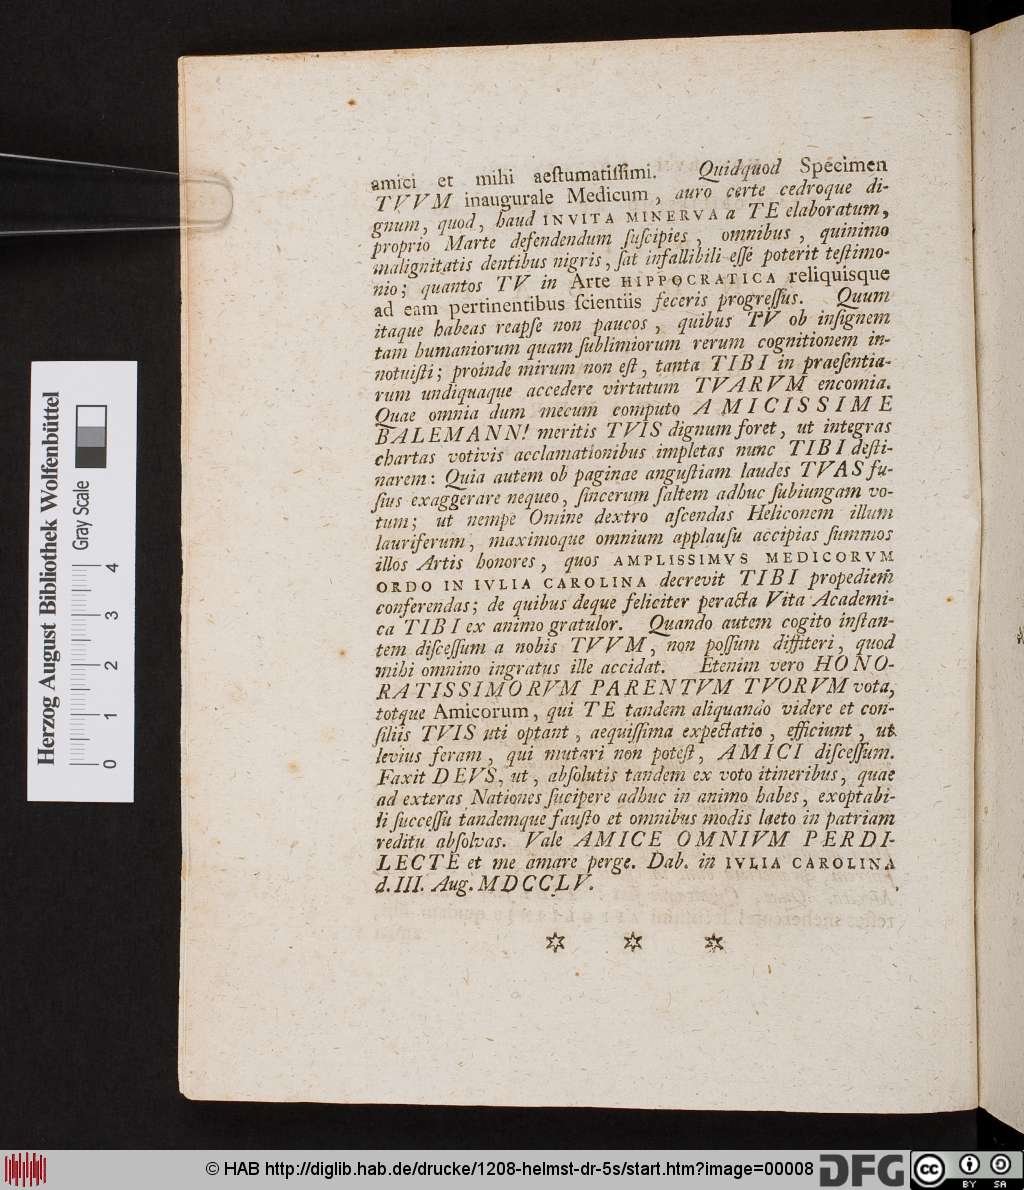 amici et mihi aeſtumatiſſimi. Quidquod Specimen
TVVM inaugurale Medicum, auro certe cedroque di-
gnum, quod, haud INVITA MINERVA a TE elaboratum,
proprio Marte defendendum ſuſcipies, omnibus, quinimo
malignitatis dentibus nigris, ſat infallibili eſſe poterit teſtimo-
nio; quantos TV in Arte HIPPOCRATICA reliquisque
ad eam pertinentibus ſcientiis feceris progreſſus. Quum
itaque habeas reapſe non paucos, quibus TV ob inſignem
tam humaniorum quam ſublimiorum rerum cognitionem in-
notuiſti; proinde mirum non eſt, tanta TIBI in praeſentia-
rum undiquaque accedere virtutum TVARVM encomia.
Quae omnia dum mecum computo AMICISSIME
BALEMANN! meritis TVIS dignum foret, ut integras
chartas votivis acclamationibus impletas nunc TIBI deſti-
narem: Quia autem ob paginae anguſtiam laudes TVAS fu-
ſius exaggerare nequeo, ſincerum ſaltem adhuc ſubiungam vo-
tum; ut nempe Omine dextro aſcendas Heliconem illum
lauriferum, maximoque omnium applauſu accipias ſummos
illos Artis honores, quos AMPLISSIMVS MEDICORVM
ORDO IN IVLIA CAROLINA decrevit TIBI propediem
conferendas; de quibus deque feliciter peracta Vita Academi-
ca TIBI ex animo gratulor. Quando autem cogito inſtan-
tem diſceſſum a nobis TVVM, non poſſum diffiteri, quod
mihi omnino ingratus ille accidat. Etenim vero HONO-
RATISSIMORVM PARENTVM TVORVM vota,
totque Amicorum, qui TE tandem aliquando videre et con-
ſiliis TVIS uti optant, aequiſſima expectatio, efficiunt, ut
levius feram, qui mutari non poteſt, AMICI diſceſſum.
Faxit DEVS, ut, abſolutis tandem ex voto itineribus, quae
ad exteras Nationes ſucipere adhuc in animo habes, exoptabi-
li ſucceſſu tandemque fauſto et omnibus modis laeto in patriam
reditu abſolvas. Vale AMICE OMNIVM PERDI-
LECTE et me amare perge. Dab. in IVLIA CAROLINA
d. III. Aug. MDCCLV.
Herzog August Bibliothek Wolfenbüttel
Gray Scale
0 1 2 3 4
© HAB http://diglib.hab.de/drucke/1208-helmst-dr-5s/start.htm?image=00008
DFG
cc BY SA